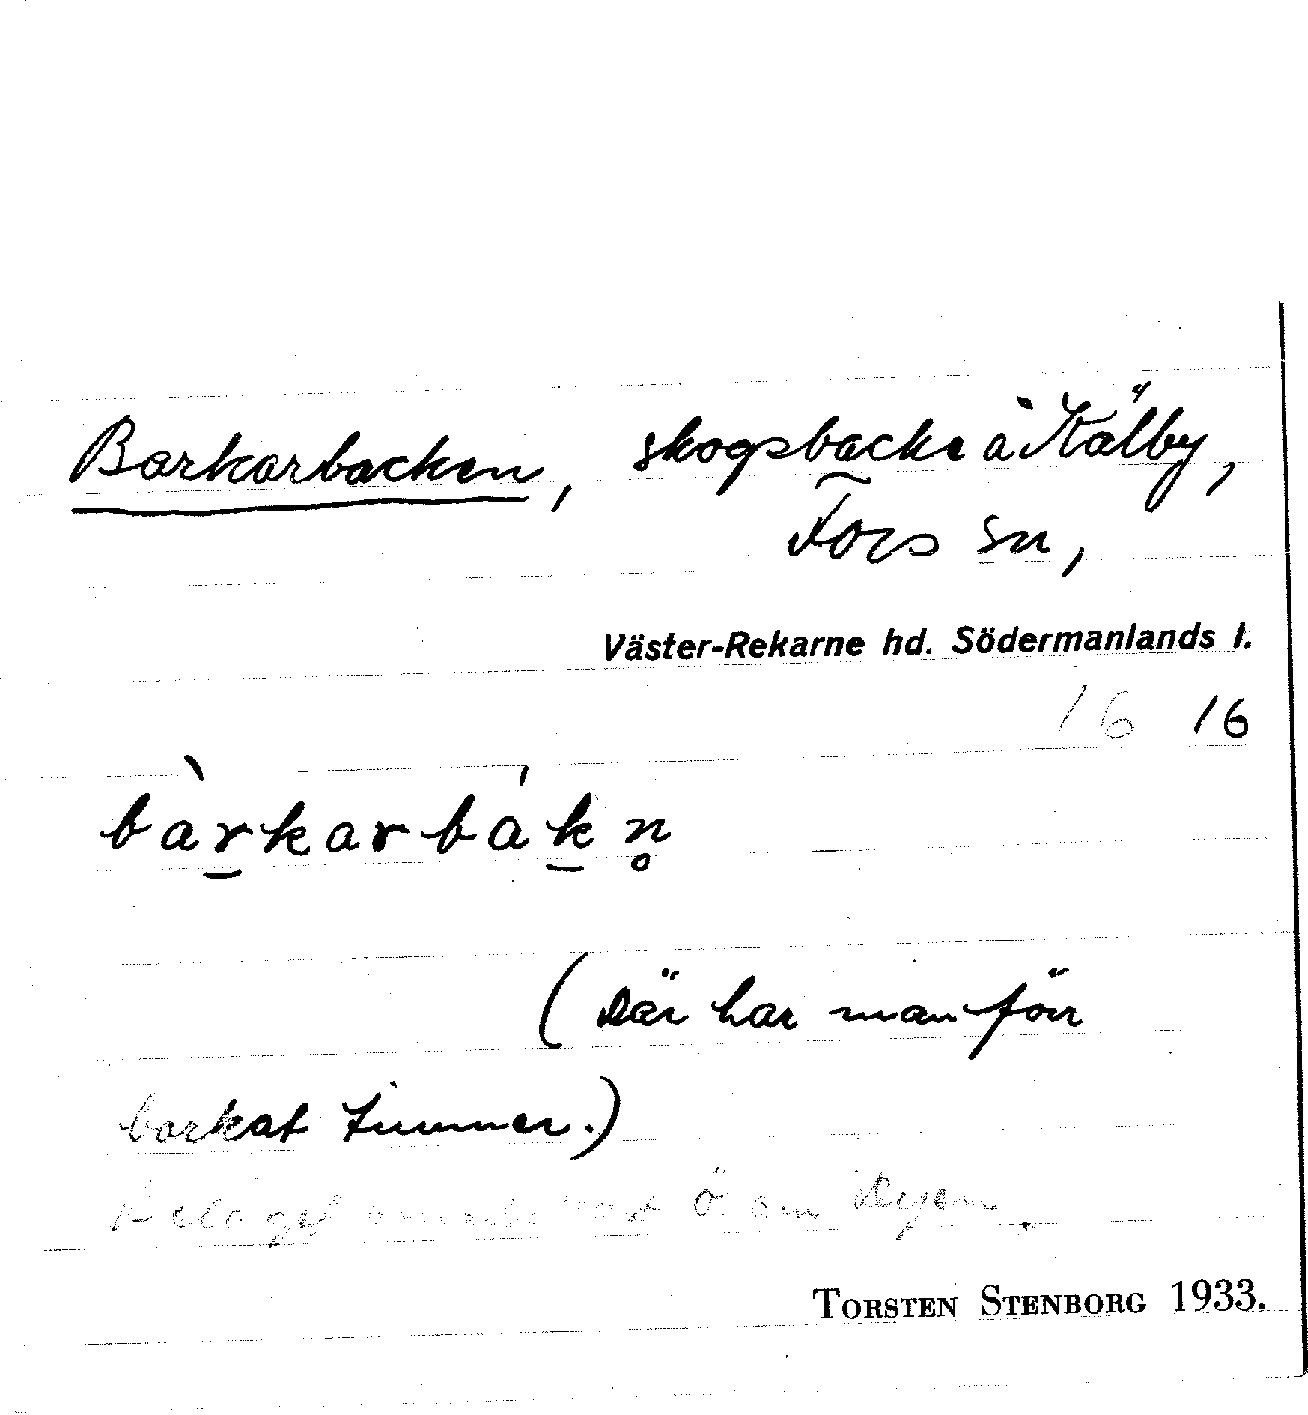 Barkarbacken, skogsbacke å Kälby,
Fors sn,
Väster-Rekarne hd. Södermanlands l.
16 16
bàrkarbákn̥
(där har man förr
barkat timmer.)
Beläget omedelbart Ö om byn.
TORSTEN STENBORG 1933.